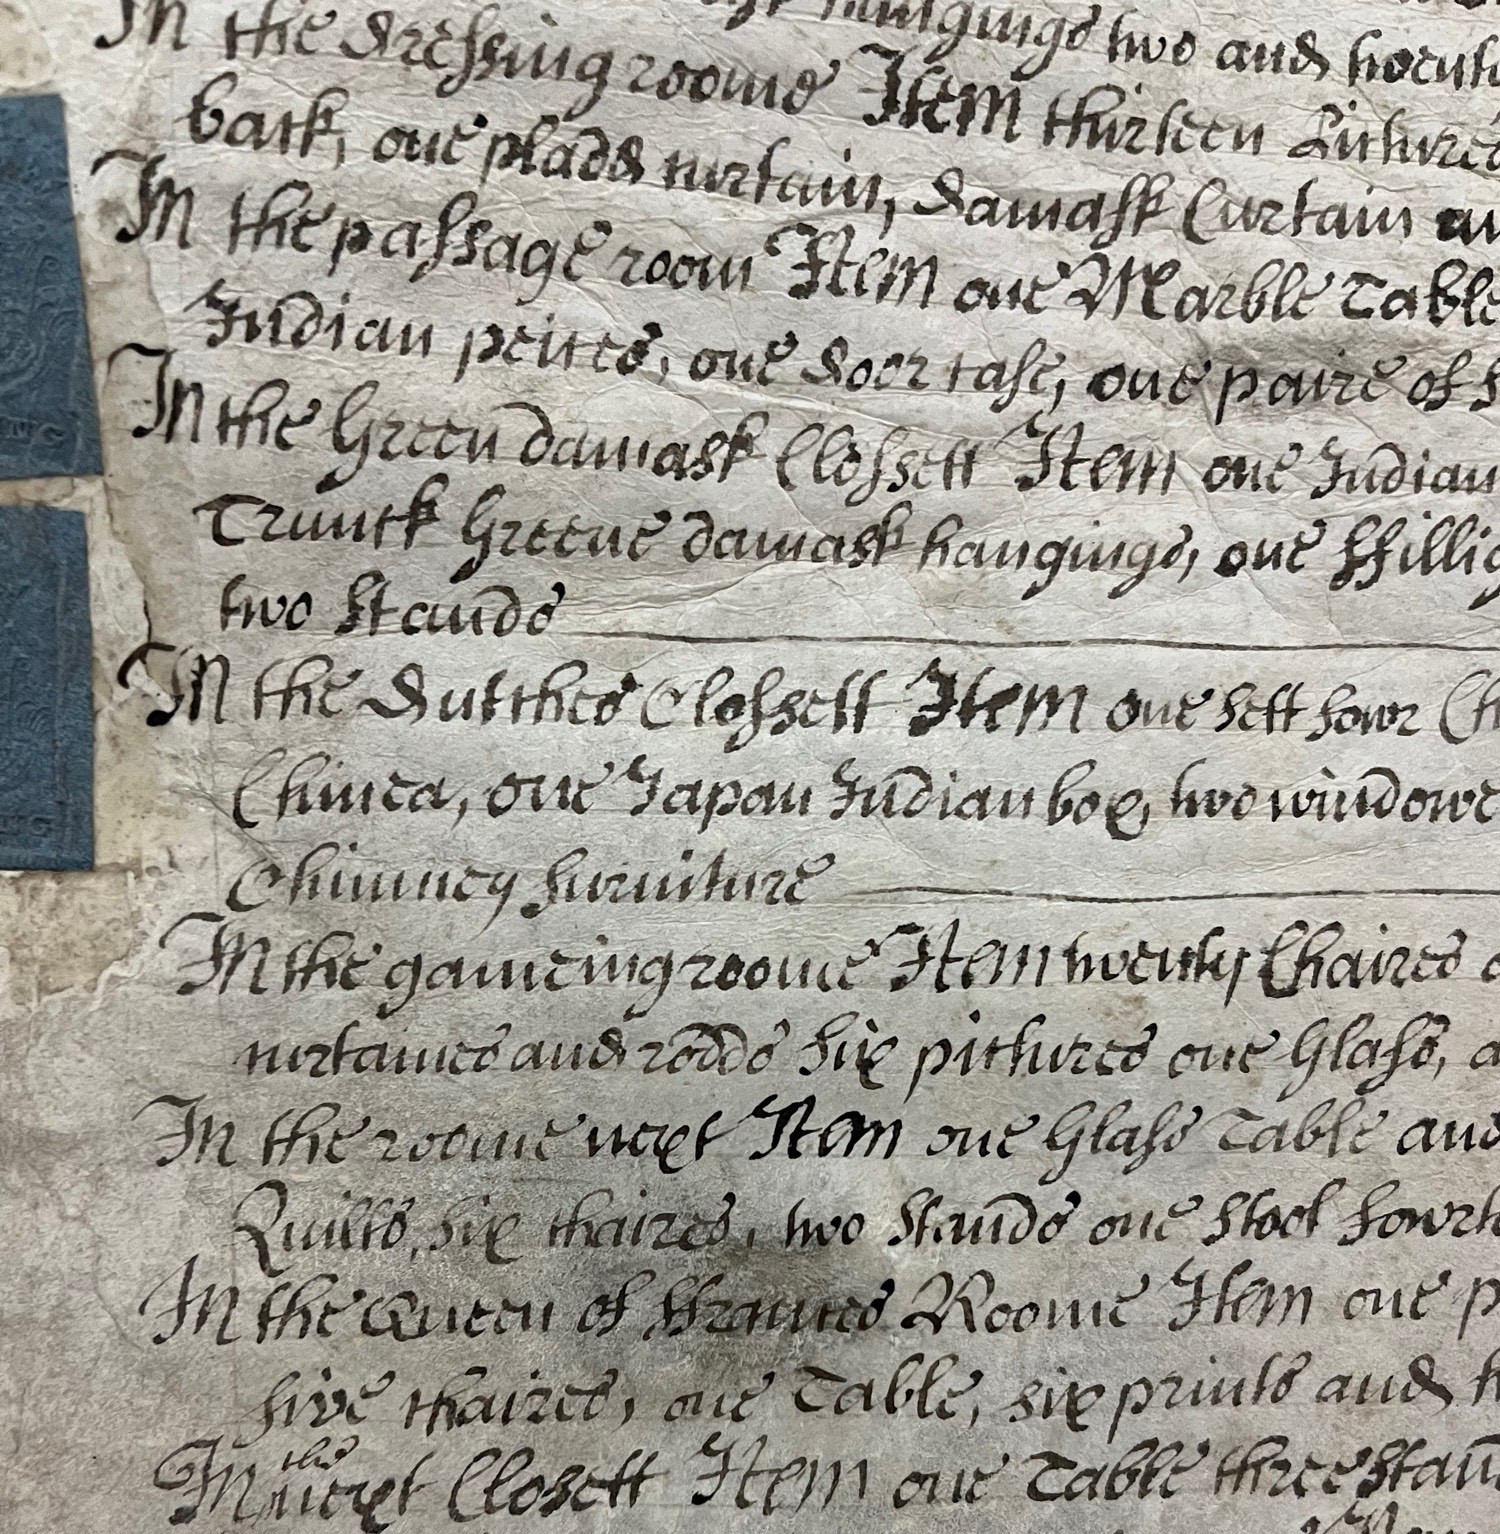 hangings two and twenty
In the dressing roome Item thirteen Pictures
back, one pladd curtain, damask Curtain an
In the passage room Item one Marble Table
Indian peices, one door case, one paire of
In the Green damask Clossett Item one Indian
Trunck Greene damask hangings, one ffillig
two stands
In the Dutches Clossett Item one sett fowr Ch
Chinea, one Japan Indian box, two windowe
Chimney furniture
In the gameing roome Item twenty Chaires
curtaines and rodds six pictures one Glass, a
In the roome next Item one Glass Table and
Quilts, six chaires, two stands one stool fowrt
In the Queen of ffrances Roome Item one p
five chaires, one Table, six prints and
In the next Clossett Item one Table three stan